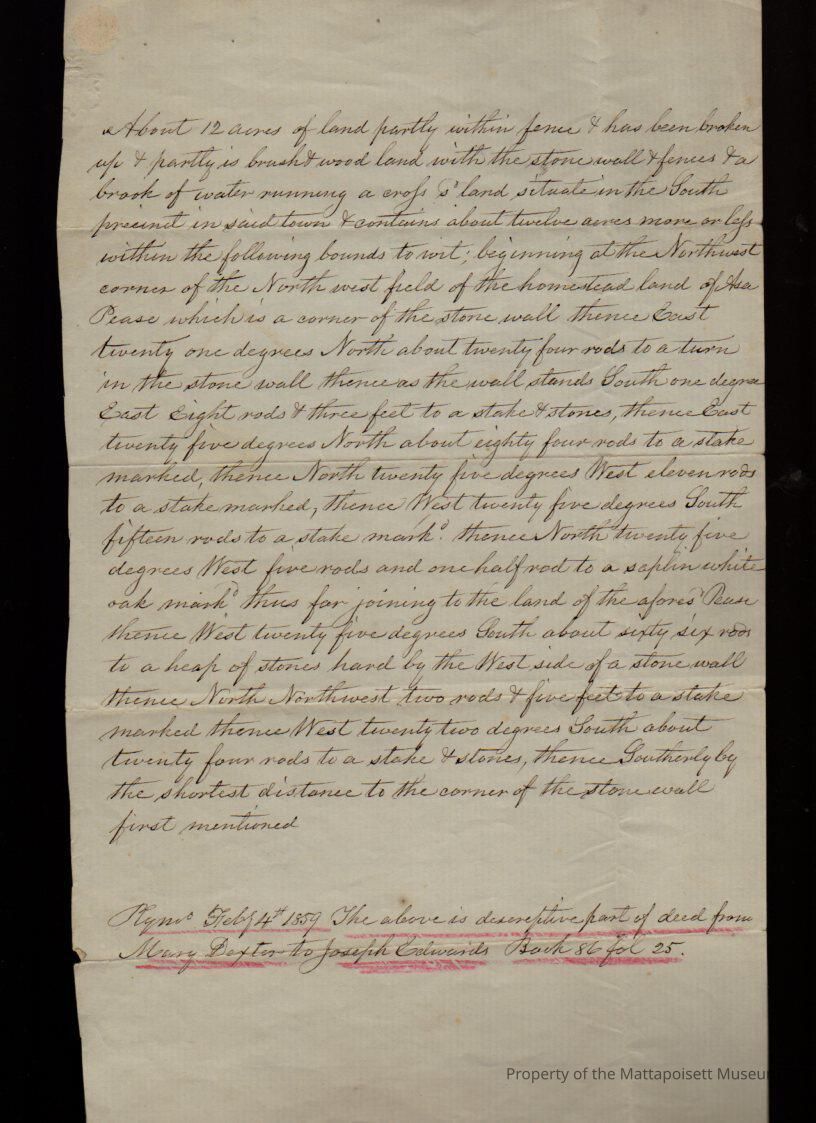 About 12 acres of land partly within fence & has been broken
up & partly is brush & wood land with the stone wall & fences & a
brook of water running a cross sd land situate in the South
precinct in said town & contains about twelve acres more or less
within the following bounds to wit; beginning at the Northwest
corner of the North west field of the homestead land of Asa
Pease which is a corner of the stone wall thence East
twenty one degrees North about twenty four rods to a turn
in the stone wall thence as the wall stands South one degree
East Eight rods & three feet to a stake & stones, thence East
twenty five degrees North about eighty four rods to a stake
marked, thence North twenty five degrees West eleven rods
to a stake marked, thence West twenty five degrees South
fifteen rods to a stake markd. thence North twenty five
degrees West five rods and one half rod to a saplin white
oak markd thus far joining to the land of the aforesd Pease
thence West twenty five degrees South about sixty six rods
to a heap of stones hard by the West side of a stone wall
thence North Northwest two rods & five feet to a stake
marked thence West twenty two degrees South about
twenty four rods to a stake & stones, thence Southerly by
the shortest distance to the corner of the stone wall
first mentioned
Feby 4th 1859 The above is descreptive part of deed from
Mary Dexter to Joseph Edwards Book 86 fol 25.
Property of the Mattapoisett Museum